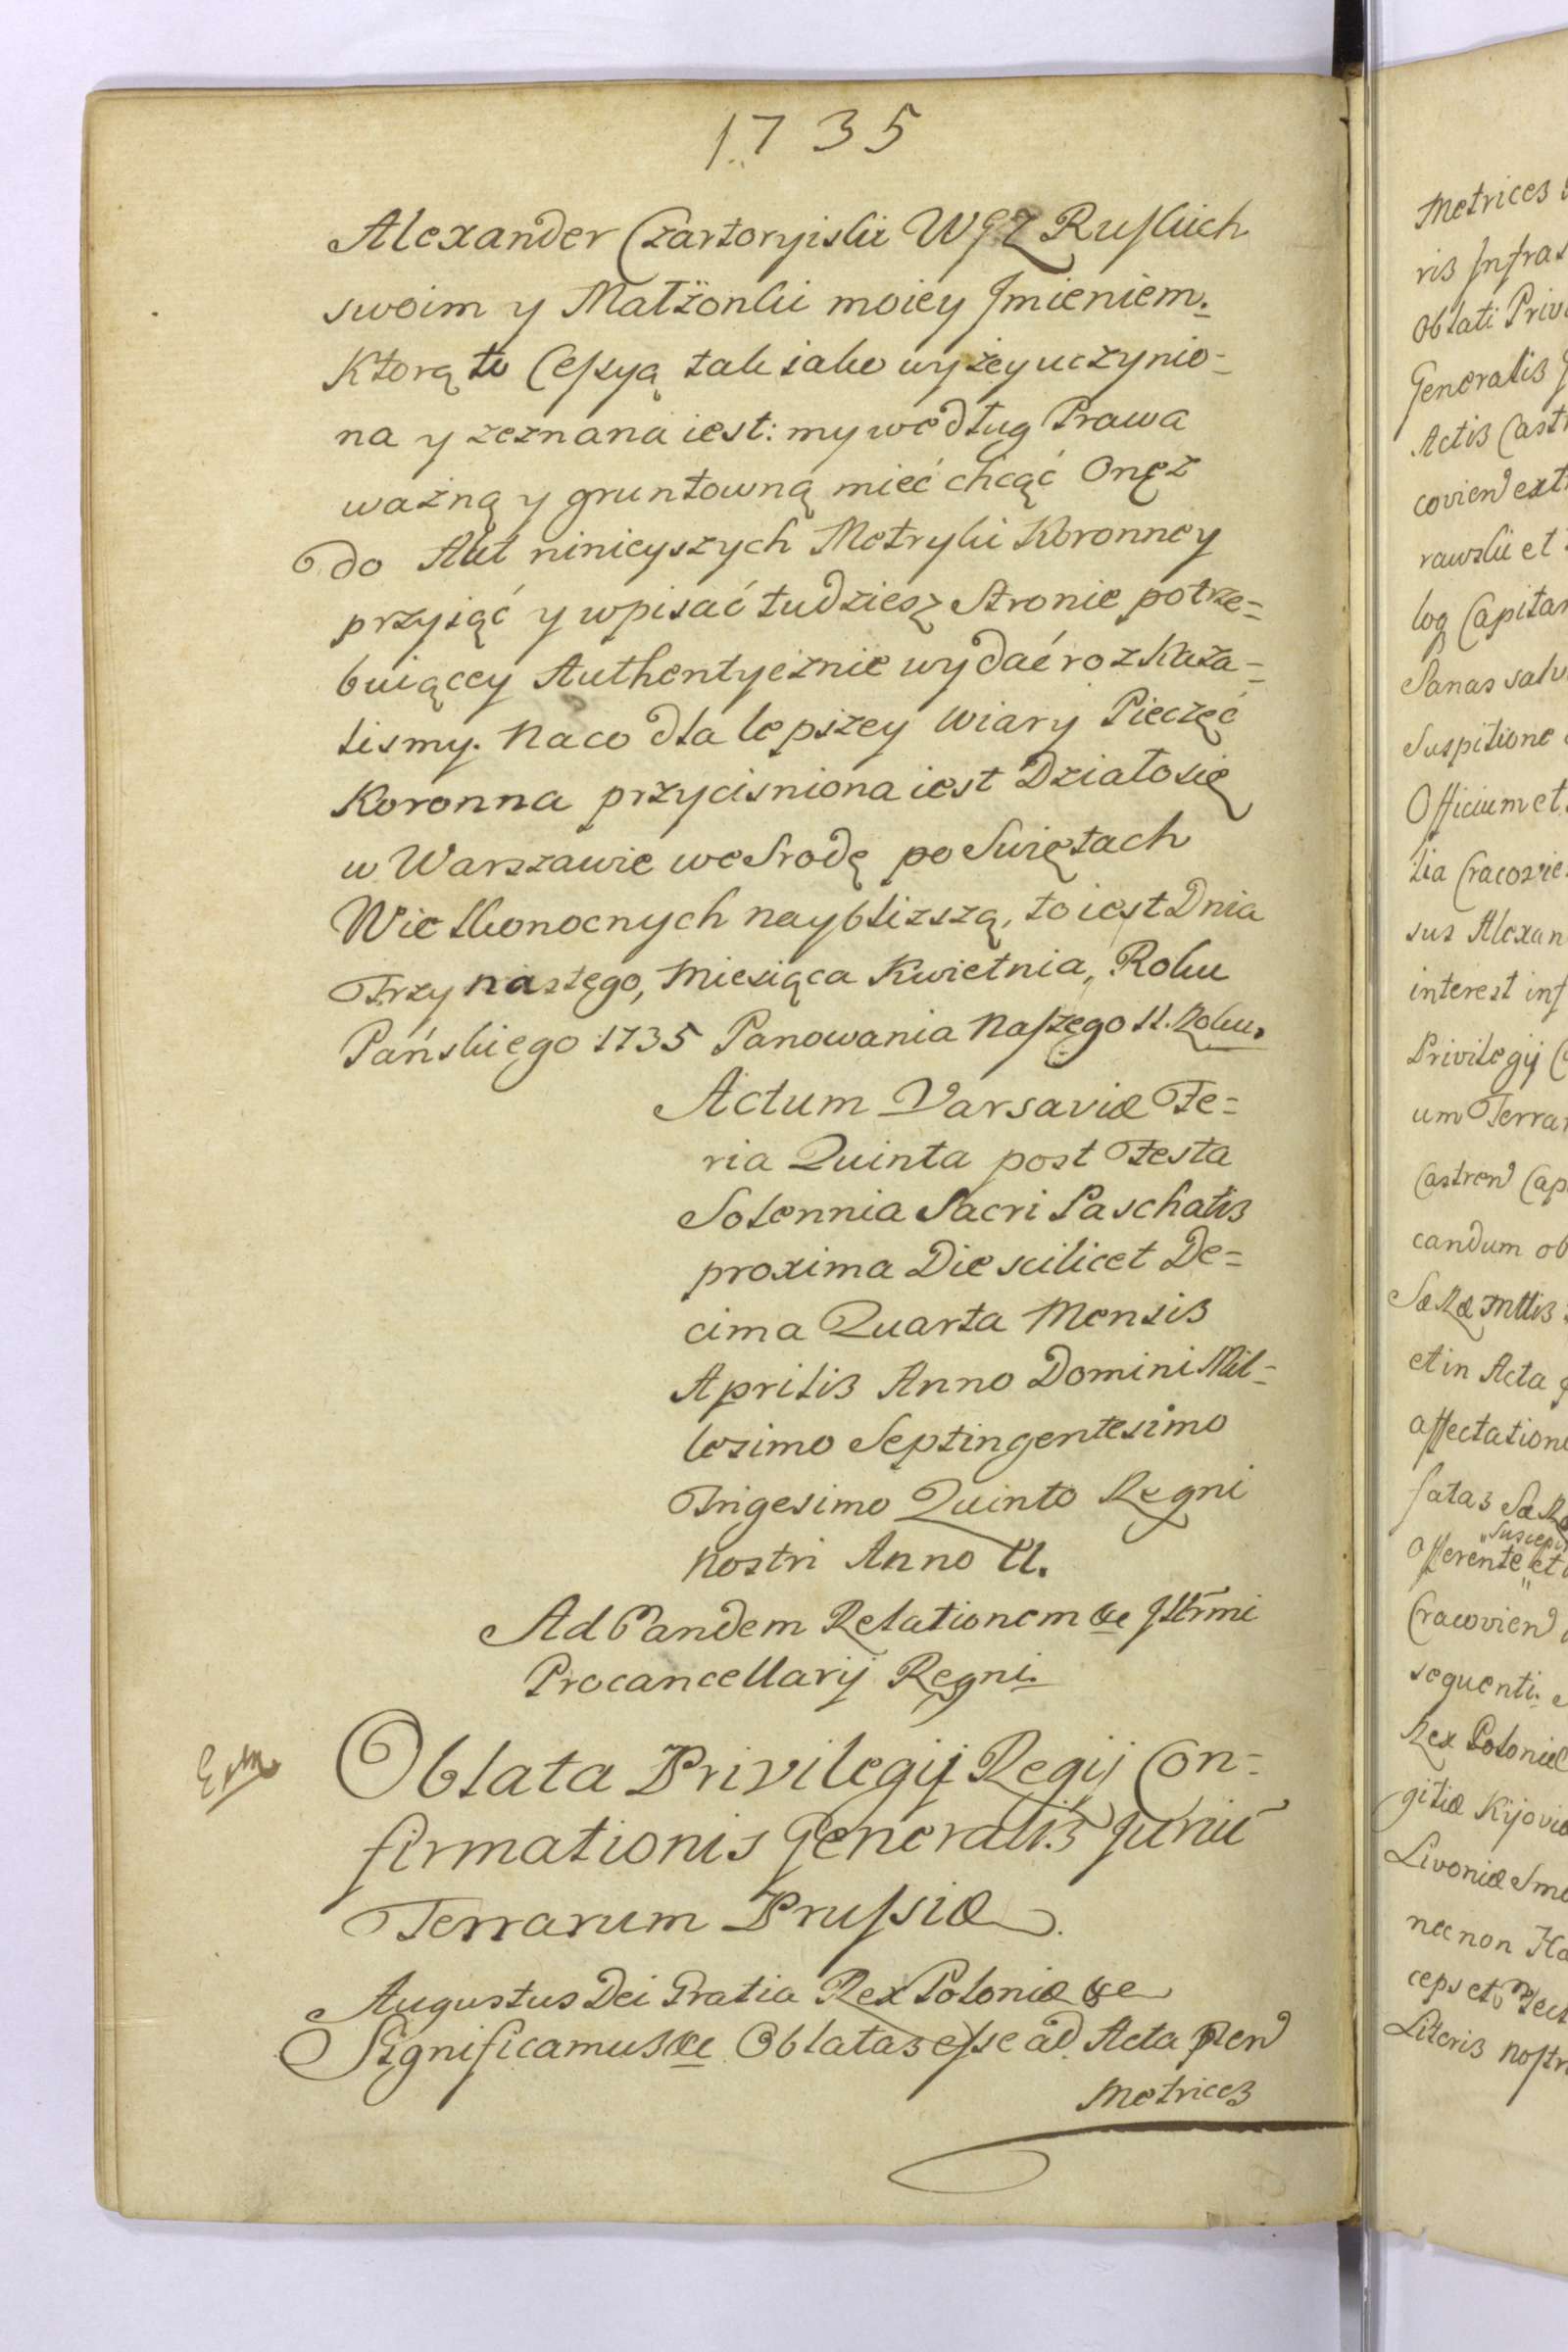 1735
Alexander Czartoryiski WGZ Ruskich
swoim y Małżonki moiey Jmieniem.
Ktorą to Cessyą tak iako wyżey uczynio-
na y zeznana iest: my według Prawa
ważną y gruntowną mieć chcąć Onęż
do Akt ninieyszych Metryki Koronney
przyiąć y wpisać tudziesz Stronie potrze-
buiącey Authentycznie wydać rozkaza-
lismy. Na co dla lepszey wiary Pieczęć
Koronna przycisniona iest Działo się
w Warszawie we Srodę po Swiętach
Wielkonocnych nayblizszą, to iest Dnia
Trzynastego, Miesiąca Kwietnia, Roku
Pańskiego 1735 Panowania Naszego II. Roku.
Actum Varsaviæ Fe-
ria Quinta post Festa
Solennia Sacri Paschatis
proxima Die scilicet De-
cima Quarta Mensis
Aprilis Anno Domini Mil-
lesimo Septingentesimo
Trigesimo Quinto Regni
Nostri Anno II.
Ad Eandem Relationem &c Jllrmi
Procancellarij Regni.
Oblata Privilegij Regij Con-
firmationis Generalis Juriū
Terrarum Prussiæ.
Augustus Dei Gratia Rex Poloniæ &c
Significamus &c Oblatas esse ad Acta pñen
Metrices
Metrices
ris Infras
Oblati Priv
Generalis
Actis Cast
covien ext
rawski et
log Capita
Sanas salv
Suspitione
Officium et
lia Cracovie
sus Alexan
interest inf
Privilegij
um Terra
Castren Cap
candum ob
SæRæ Mttis
et in Acta
affectation
fatas SæR
Suscepi
Offerente et
Cracovien
sequenti.
Rex Poloniæ
gitiæ Kijoviæ
Livoniæ Smo
nec non
ceps et Elect
Literis nostr